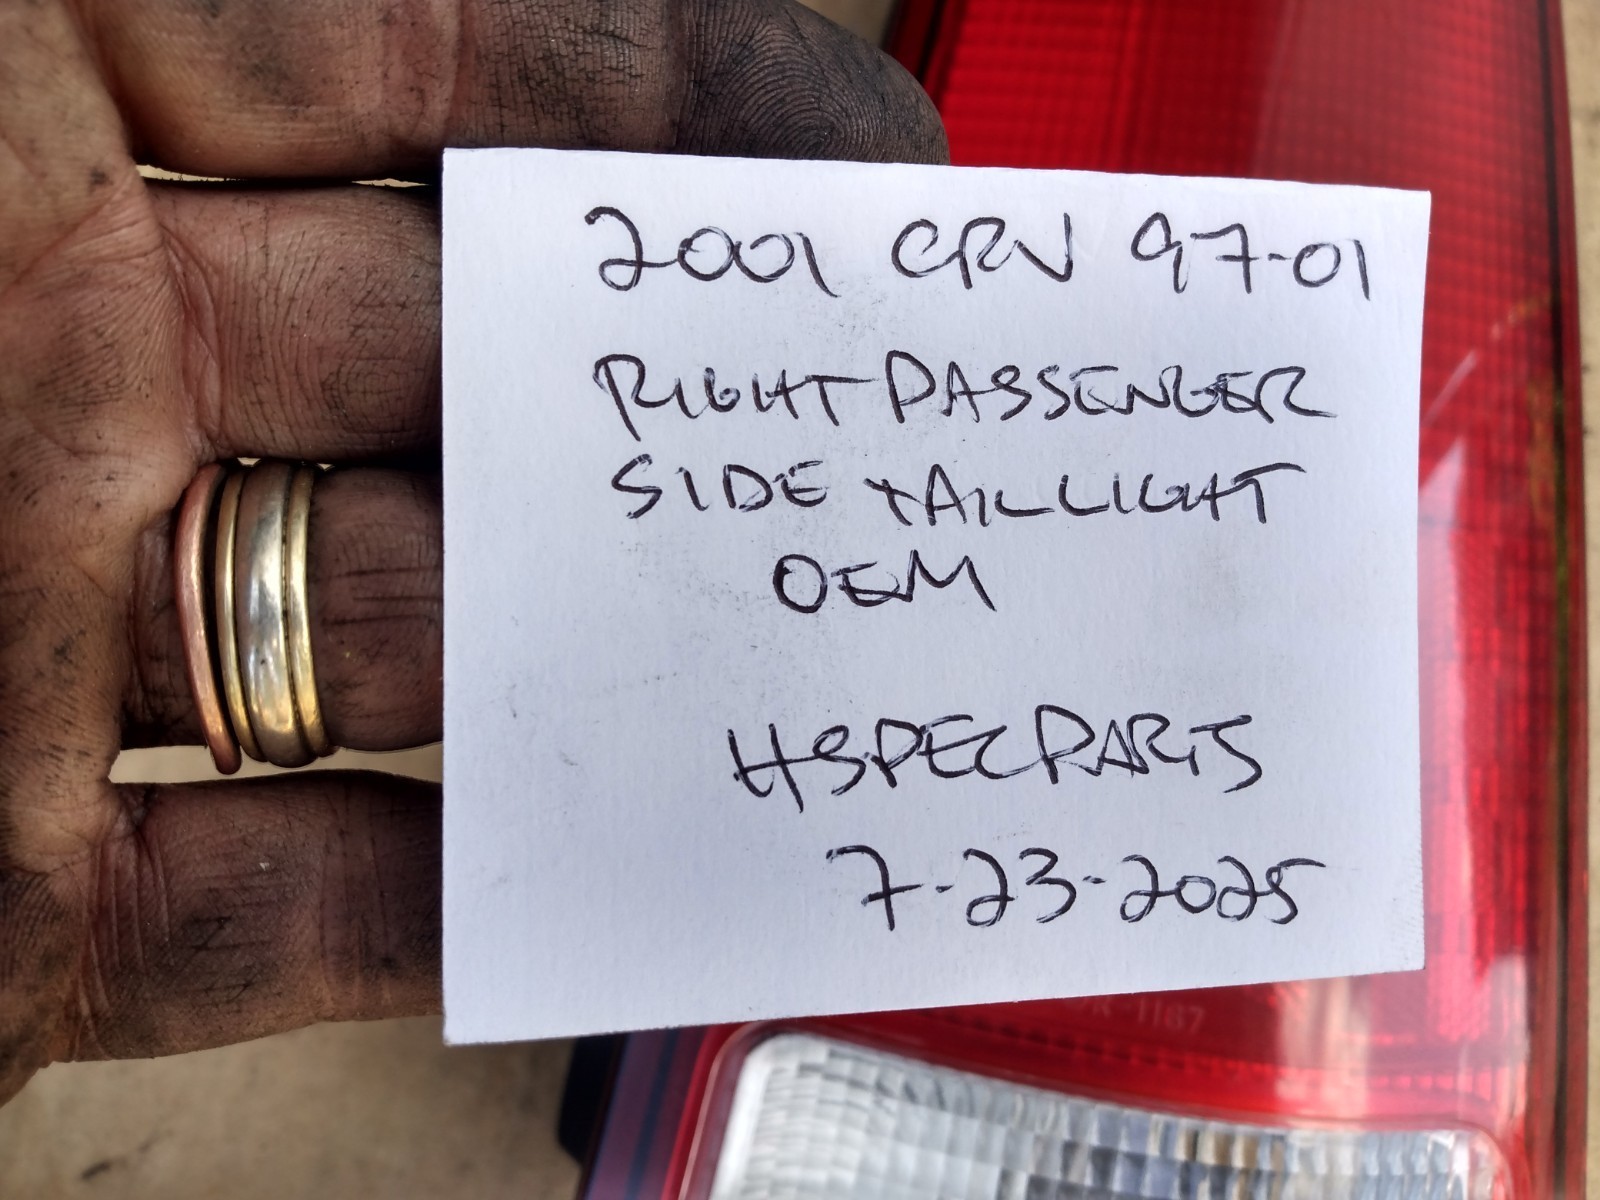 2001 CRV 97-01
RIGHT PASSENGER
SIDE TAILLIGHT
OEM
HSPECPARTS
7-23-2025
-1167